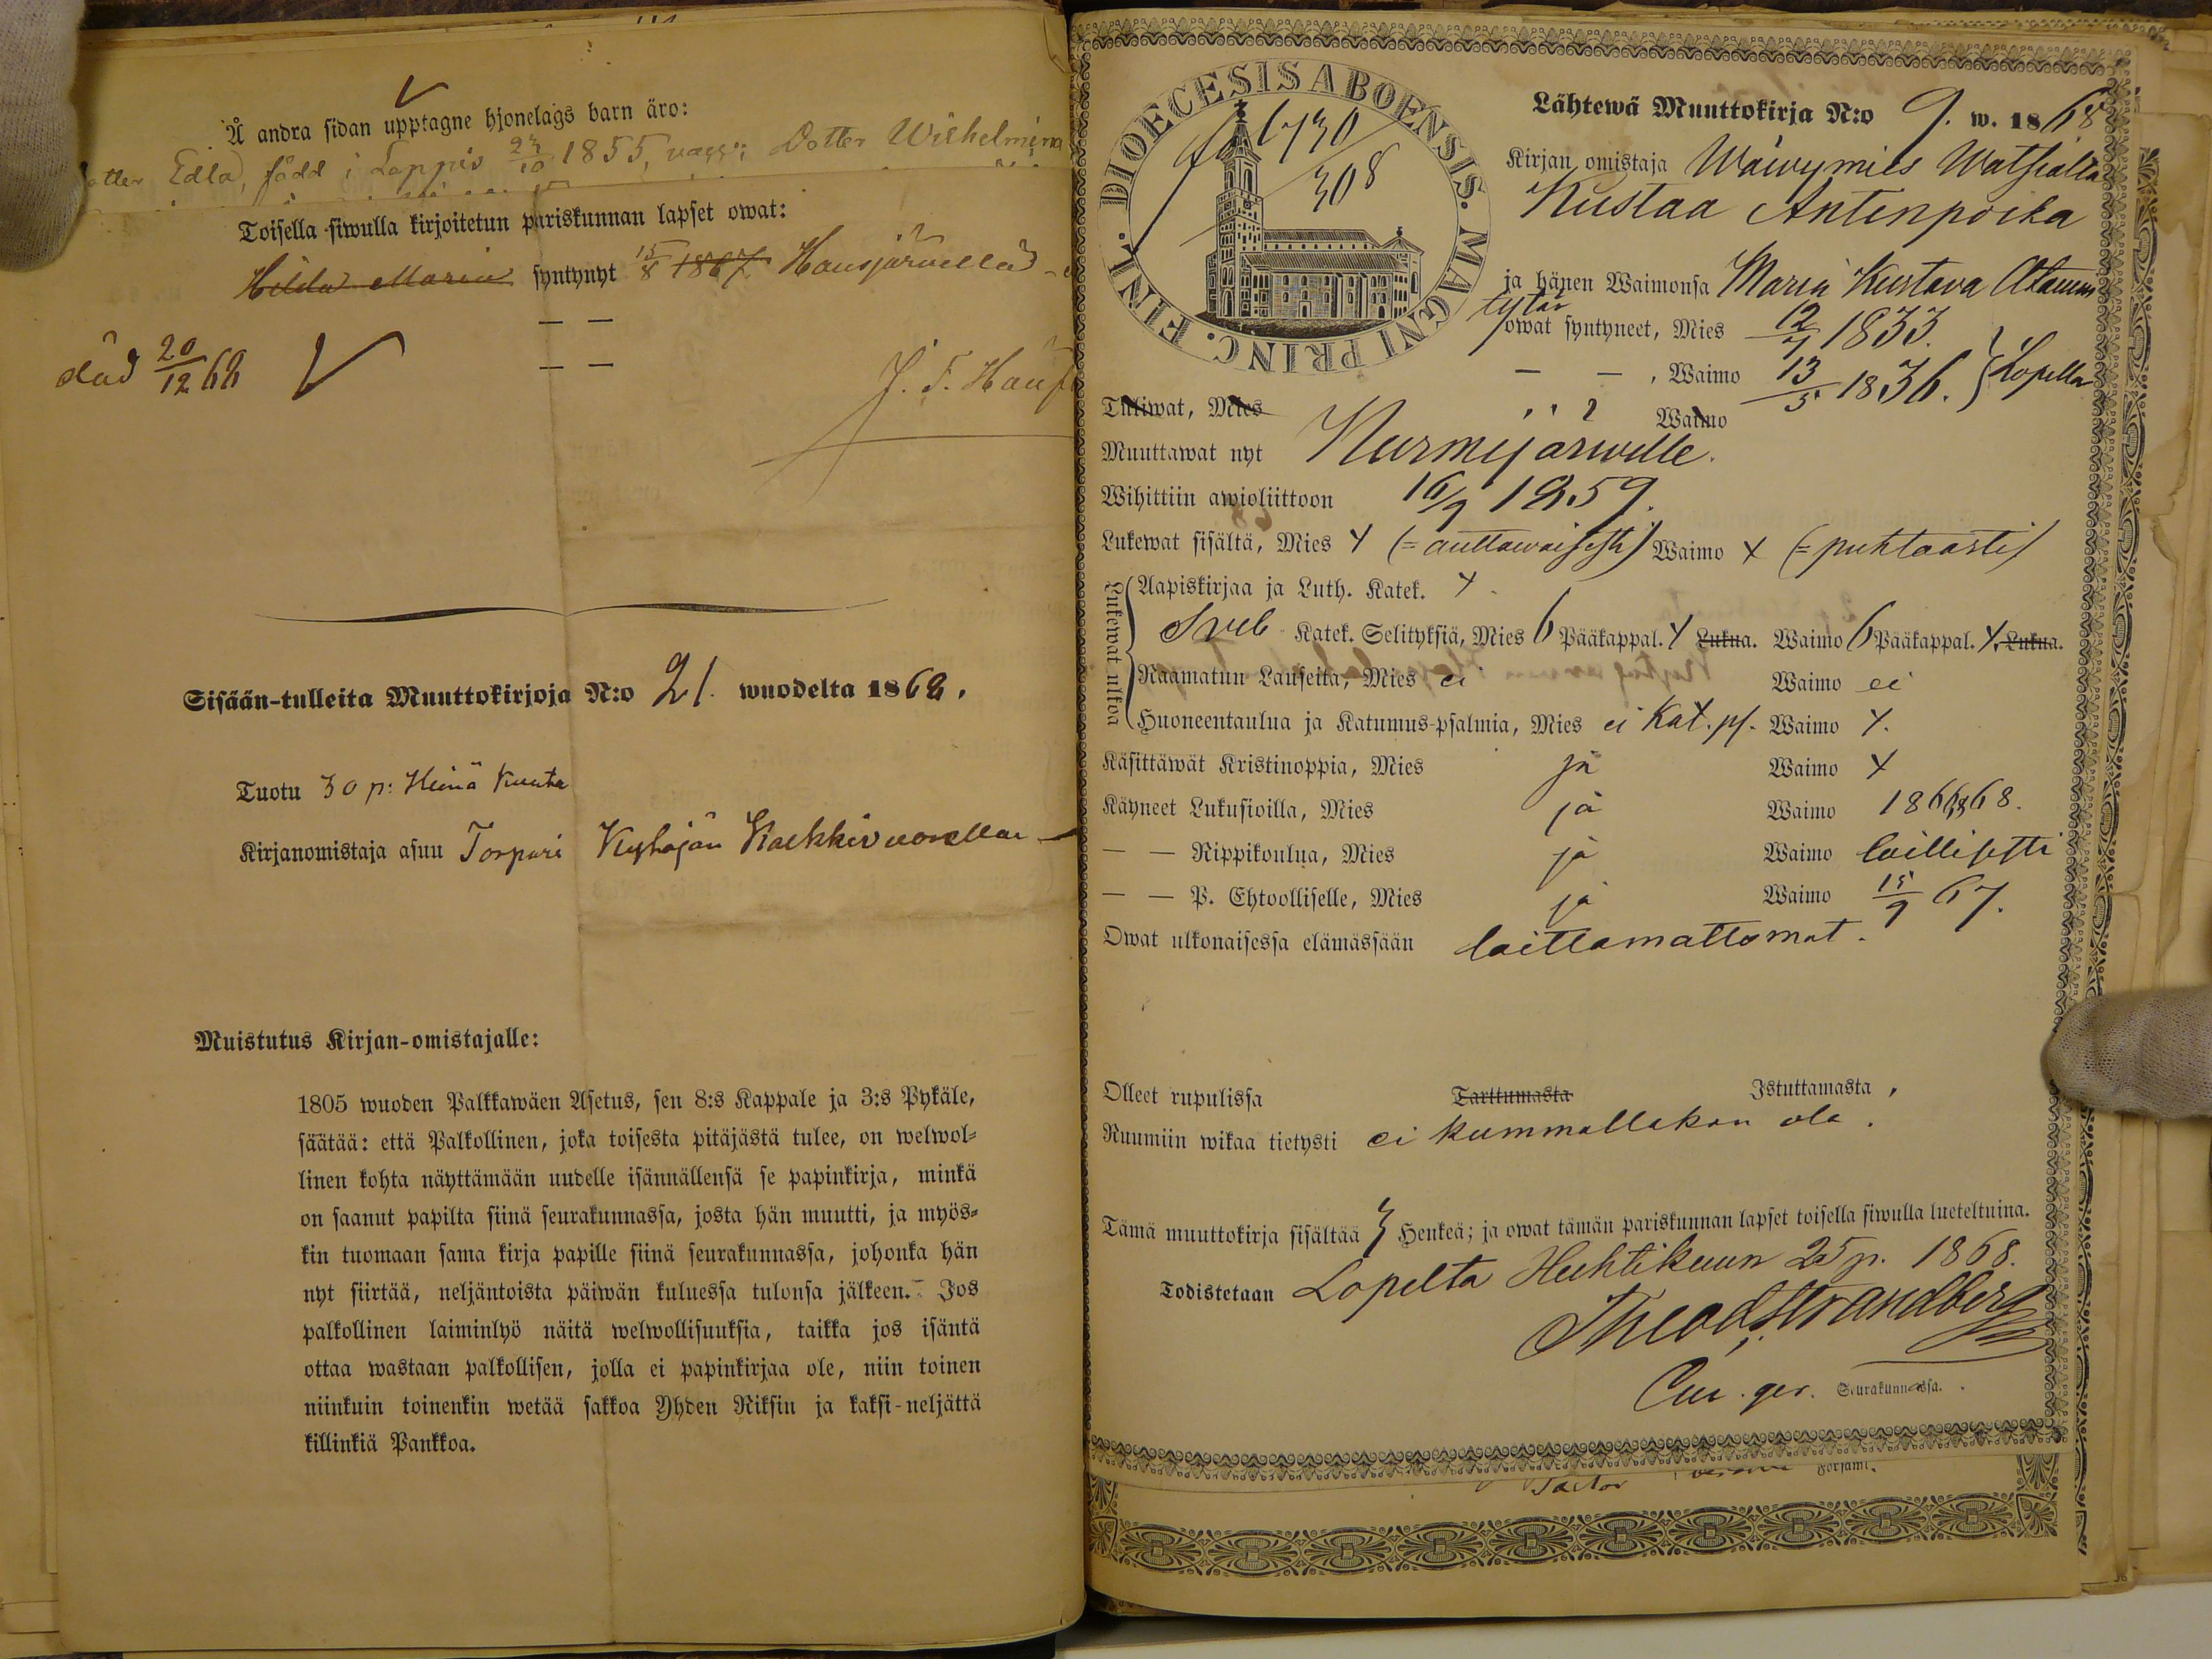 Å andra sidan upptagne hjonelags barn äro:
Edla, född i Loppis 23/10 1855, vacc; Dotter Wilhelmina
Toisella siwulla kirjoitetun pariskunnan lapset owat:
Hilda Maria syntynyt 15/8 1867 Hausjärvellä
död 20/12 68
— —
— —
J. F.
Sisään-tulleita Muuttokirjoja N:o 21. wuodelta 1868.
Tuotu 30 p: Heinä Kuuta
Kirjanomistaja asuu Torpari Kytäjän
Muistutus Kirjan-omistajalle:
1805 wuoden Palkkawäen Asetus, sen 8:s Kappale ja 3:s Pykäle,
säätää: että Palkollinen, joka toisesta pitäjästä tulee, on welwol-
linen kohta näyttämään uudelle isännällensä se papinkirja, minkä
on saanut papilta siinä seurakunnassa, josta hän muutti, ja myös-
kin tuomaan sama kirja papille siinä seurakunnassa, johonka hän
nyt siirtää, neljäntoista päiwän kuluessa tulonsa jälkeen. Jos
palkollinen laiminlyö näitä welwollisuuksia, taikka jos isäntä
ottaa wastaan palkollisen, jolla ei papinkirjaa ole, niin toinen
niinkuin toinenkin wetää sakkoa Yhden Riksin ja kaksi-neljättä
killinkiä Pankkoa.
DIOECESIS ABOENSIS. MAGNI PRINC. FINL.
6730
308
Lähtewä Muuttokirja N:o 9. w. 1868
Kirjan omistaja Wäwymies Watsialta
Kustaa Antinpoika
ja hänen Waimonsa Maria Kustava
tytär
owat syntyneet, Mies 12/7 1833.
— — , Waimo 13/5 1836. } Lopella
Tuliwat, Mies Waimo
Muuttawat nyt Nurmijärwelle.
Wihittiin awioliittoon 16/9 1859.
Lukewat sisältä, Mies + (= auttawaisesti) Waimo + (= puhtaasti)
Lukewat ulkoa
Aapiskirjaa ja Luth. Katek. +
Sveb Katek. Selityksiä, Mies 6 Pääkappal. + Lukua. Waimo 6 Pääkappal. + Lukua.
Raamatun Lauseita, Mies ei Waimo ei
Huoneentaulua ja Katumus-psalmia, Mies ei Kat. ps. Waimo +.
Käsittäwät Kristinoppia, Mies ja Waimo +
Käyneet Lukusioilla, Mies ja Waimo
— — Rippikoulua, Mies ja Waimo laillisesti
— — P. Ehtoolliselle, Mies ja Waimo 15/9 67.
Owat ulkonaisessa elämässään laittamattomat.
Olleet rupulissa Tarttumasta Istuttamasta ,
Ruumiin wikaa tietysti ei kummallakan ole.
Tämä muuttokirja sisältää 3 Henkeä; ja owat tämän pariskunnan lapset toisella siwulla lueteltuina.
Todistetaan Lopelta Huhtikuun 25 p. 1868.
Theod. Strandberg
Cur. ger. Seurakunnassa.
Pastor församl.